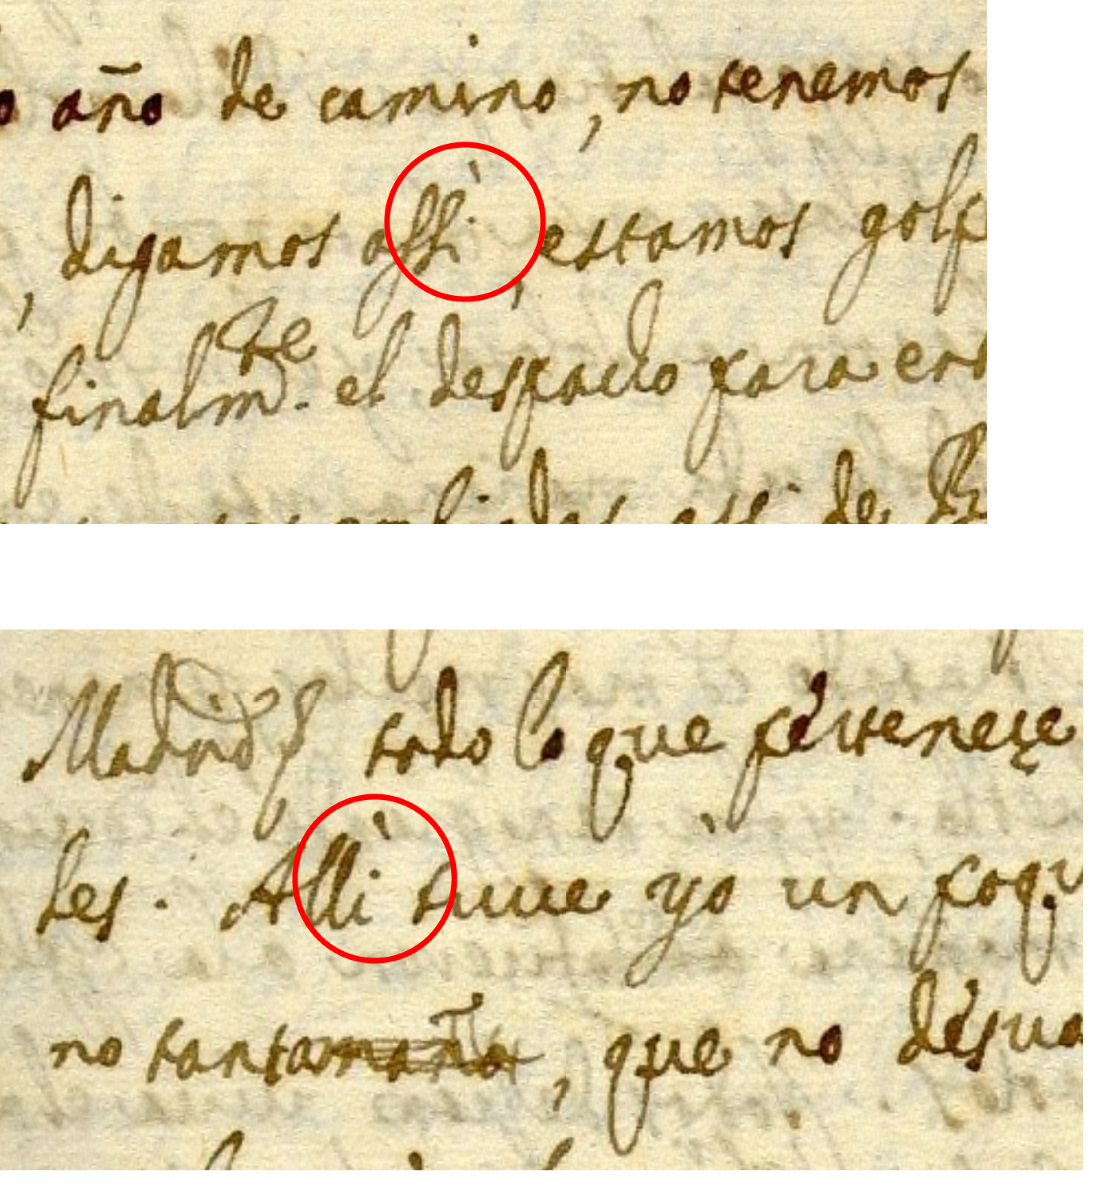 o año de camino, no tenemos
, digamos assì, estamos golf
finalm.te el despacho para est
assi de
Madrid, y todo lo que pérteneçe
tes. Allì tuue yò un poqu
no tantamaña, que no désua